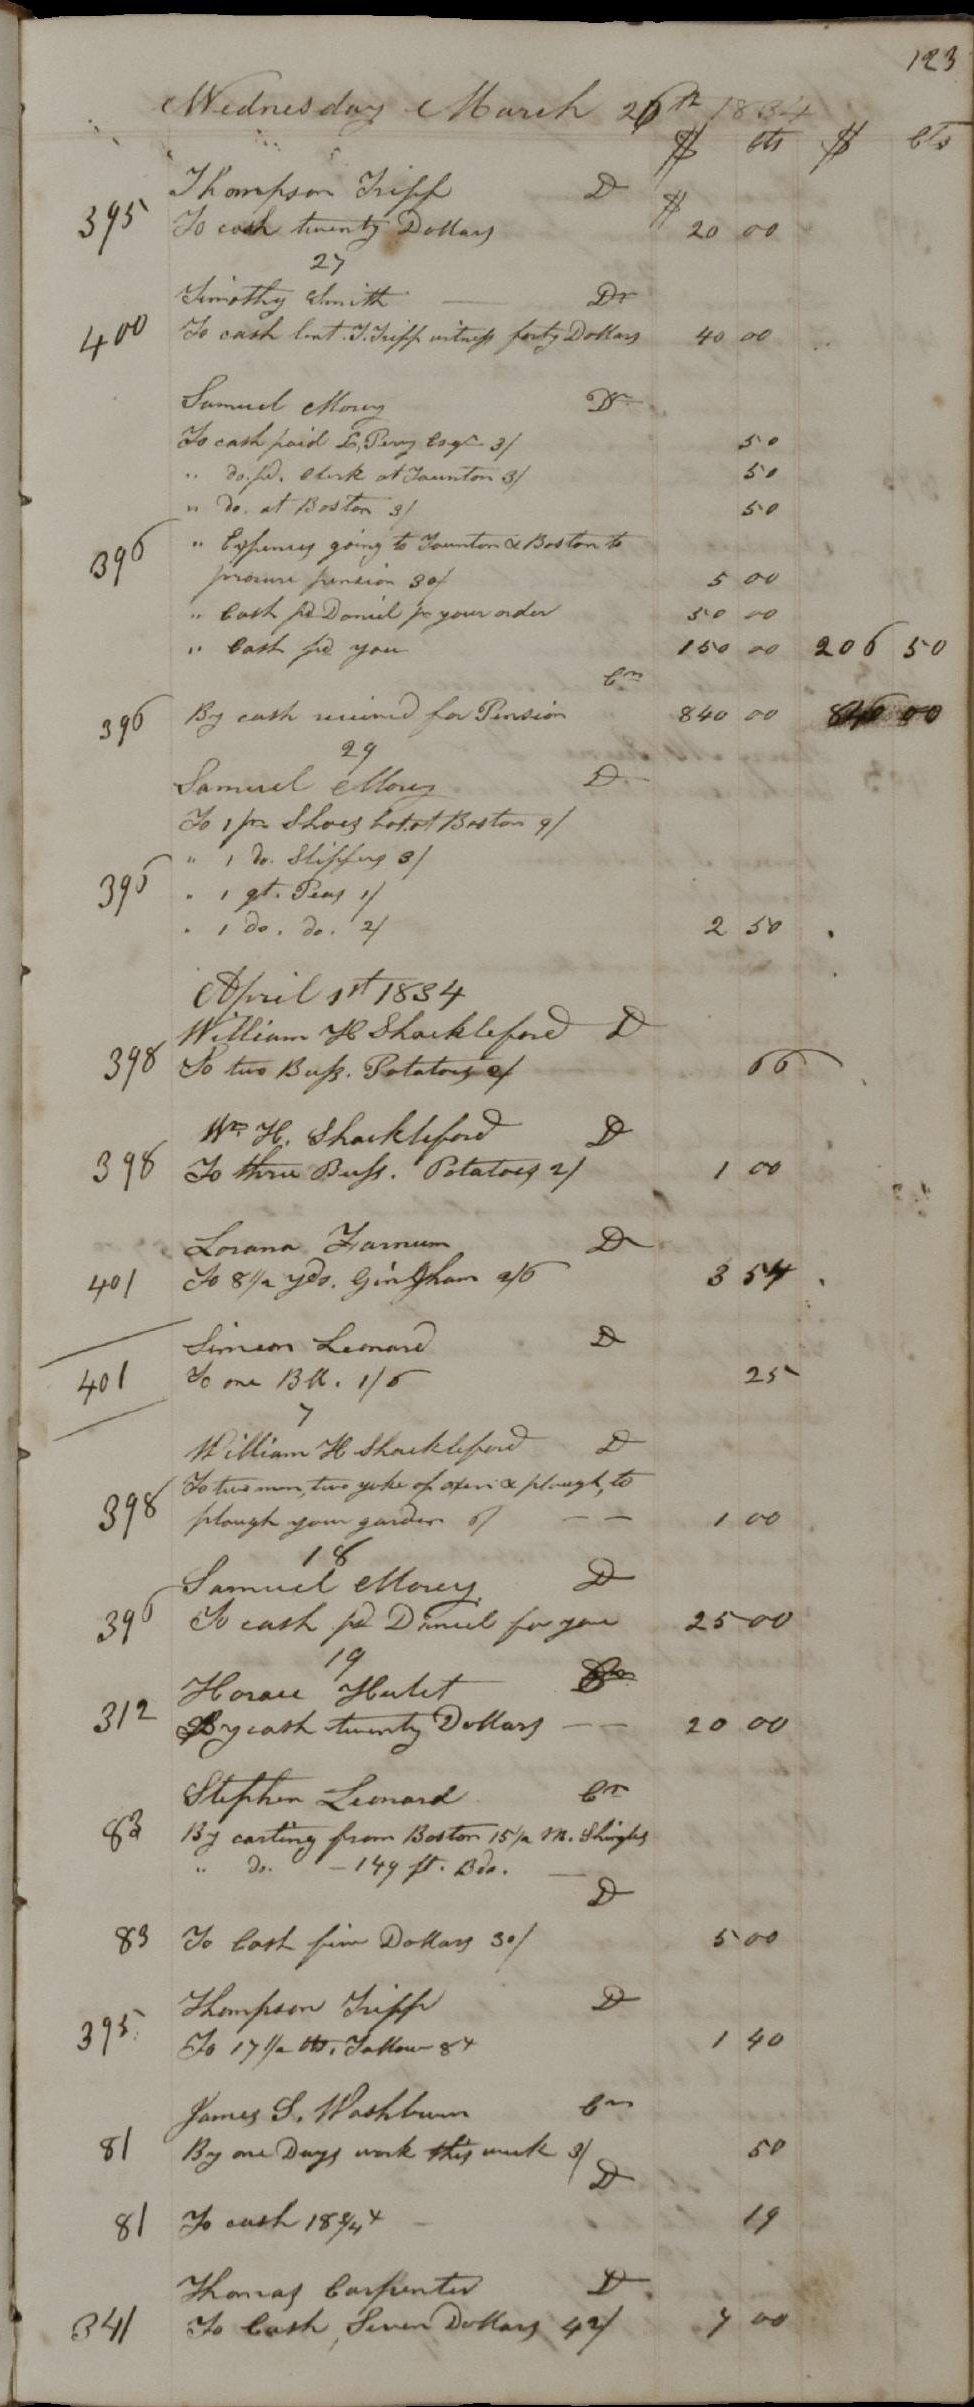 123
Wednesday March 26th 1834
$ cts $ Cts
Thompson Tripp Dr
395 To cash twenty Dollars $ 20 00
27
Timothy Smith Dr
400 To cash lent T. Tripp witness forty Dollars 40 00
Samuel Morey Dr
To cash paid E, Perry Esqr 3/ 50
" do. pd. Clerk at Taunton 3/ 50
" do. at Boston 3/ 50
396 " Expenses going to Taunton & Boston to
procure pension 30/ 5 00
" Cash pd Daniel pr your order 50 00
" Cash pd you 150 00 206 50
Cr
396 By cash received for Pension 840 00 840 00
29
Samuel Morey Dr
To 1 pr Shoes bot. at Boston 9/
" 1 do. Slippers 3/
396 " 1 qt. Peas 1/
" 1 do. do. 2/ 2 50
April 1st 1834
William H Shackleford Dr
398 To two Bush. Potatoes 2/ 66
Wm H. Shackleford Dr
398 To three Bush. Potatoes 2/ 1 00
Lorana Farnum Dr
401 To 8 1/2 yds. Gingham 2/6 3 54
Simeon Leonard Dr
401 To one Bll. 1/6 25
7
William H Shackleford Dr
To two men, two yoke of oxen & plough, to
398 plough your garden 6/ 1 00
18
Samuel Morey Dr
396 To cash pd Daniel for you 25 00
19
Horace Hulet
312 By cash twenty Dollars 20 00
Stephen Leonard Cr
83 By carting from Boston 15 1/2 M. Shingles
" do. - 149 ft. Bds.
Dr
83 To Cash five Dollars 30/ 5 00
Thompson Tripp Dr
395 To 17 1/2 lbs. Tallow 8 1 40
James S. Washburn Cr
81 By one Days work this week 3/ 50
Dr
81 To cash 18 3/4 19
Thomas Carpenter Dr
341 To Cash, Seven Dollars 42/ 7 00